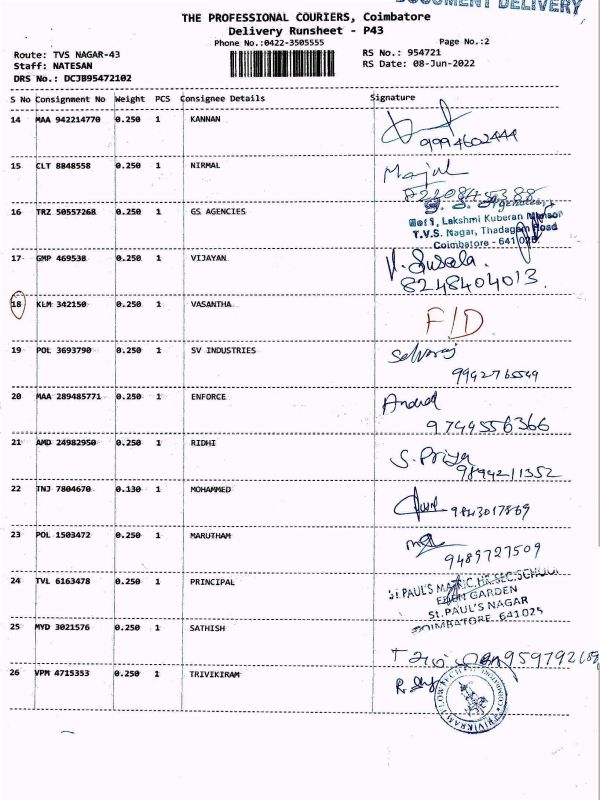 DOCUMENT DELIVERY
THE PROFESSIONAL COURIERS, Coimbatore
Delivery Runsheet - P43
Phone No.:0422-3505555
Page No.:2
Route: TVS NAGAR-43
RS No.: 954721
Staff: NATESAN
RS Date: 08-Jun-2022
DRS No.: DCJB95472102
S No Consignment No Weight PCS Consignee Details Signature
14 MAA 942214770 0.250 1 KANNAN
9994602444
15 CLT 8848558 0.250 1 NIRMAL
16 TRZ 50557268 0.250 1 GS AGENCIES
Lakshmi Kuberan
T.V.S. Nagar, Thadagam Road
Coimbatore - 641 025.
17 GMP 469538 0.250 1 VIJAYAN V. Susela.
8248404013.
18 KLM 342150 0.250 1 VASANTHA F/D
19 POL 3693790 0.250 1 SV INDUSTRIES Selvaraj
9942765549
20 MAA 289485771 0.250 1 ENFORCE Anand
9744556366
21 AMD 24982950 0.250 1 RIDHI S. Priya
9894211352
22 TNJ 7804670 0.130 1 MOHAMMED 9843017869
23 POL 1503472 0.250 1 MARUTHAM
9489727509
24 TVL 6163478 0.250 1 PRINCIPAL St.PAUL'S MATRIC.HR.SEC.SCHOOL
EDEN GARDEN
St.PAUL'S NAGAR
COIMBATORE. 641025
25 MYD 3021576 0.250 1 SATHISH
26 VPM 4715353 0.250 1 TRIVIKIRAM